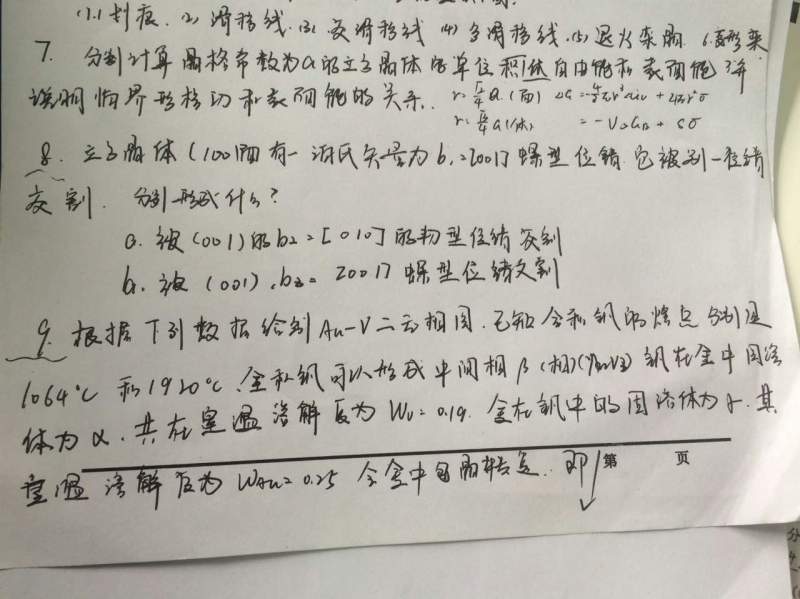 (1)划痕. (2)滑移线. (3)交滑移线 (4)多滑移线. (5)退火孪晶 6.变形孪
7. 分别计算晶格常数为a的立方晶体的单位积体自由能和表面能,并
说明临界形核功和表面能的关系.
8. 立方晶体(100)面有一 柏氏矢量为b₁=[001]螺型位错,它被另一位错
交割. 分别形成什么?
a. 被(001)的b₂=[010]的刃型位错交割
b. 被(001), b₂= [001]螺型位错交割
9. 根据下列数据绘制Au-V二元相图.已知金和钒的熔点分别是
1064℃和1920℃,金和钒可以形成中间相β(相) 钒在金中固溶
体为α.其在室温溶解度为Wv=0.19. 金在钒中的固溶体为γ.其
室温溶解度为WAu=0.25 合金中包晶转变. 即
第 页